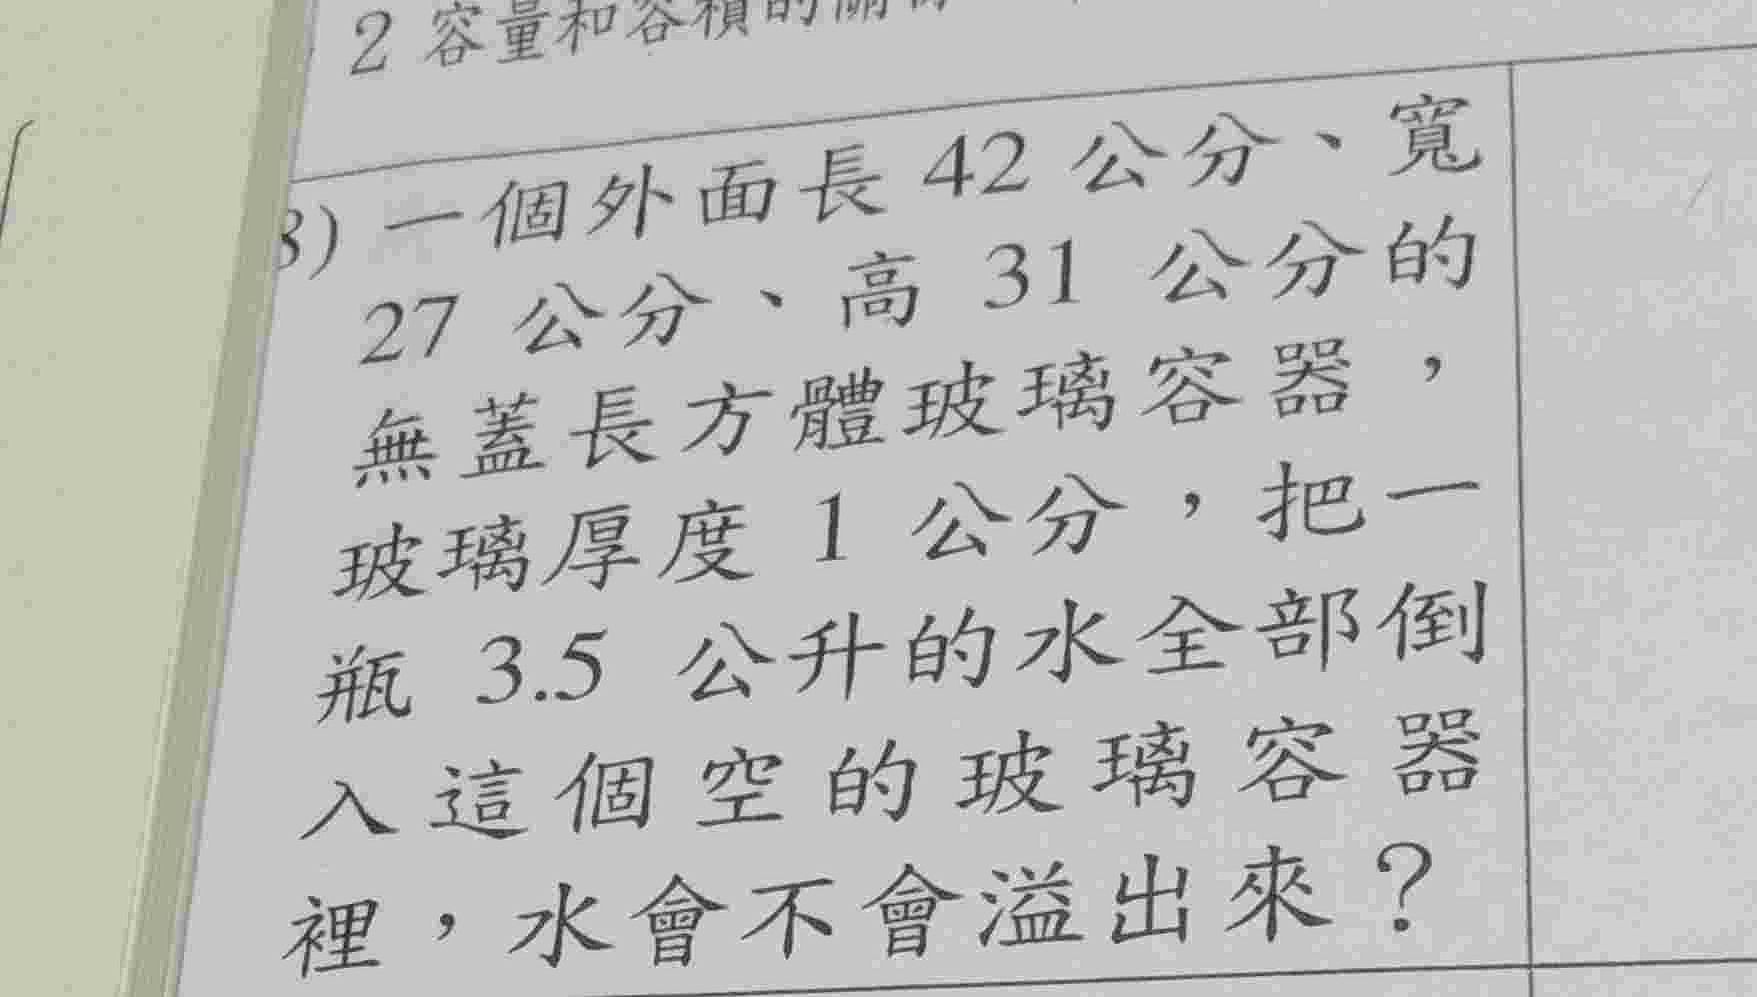 2 容量和容積的關係
3) 一個外面長 42 公分、寬
27 公分、高 31 公分的
無蓋長方體玻璃容器，
玻璃厚度 1 公分，把一
瓶 3.5 公升的水全部倒
入這個空的玻璃容器
裡，水會不會溢出來？